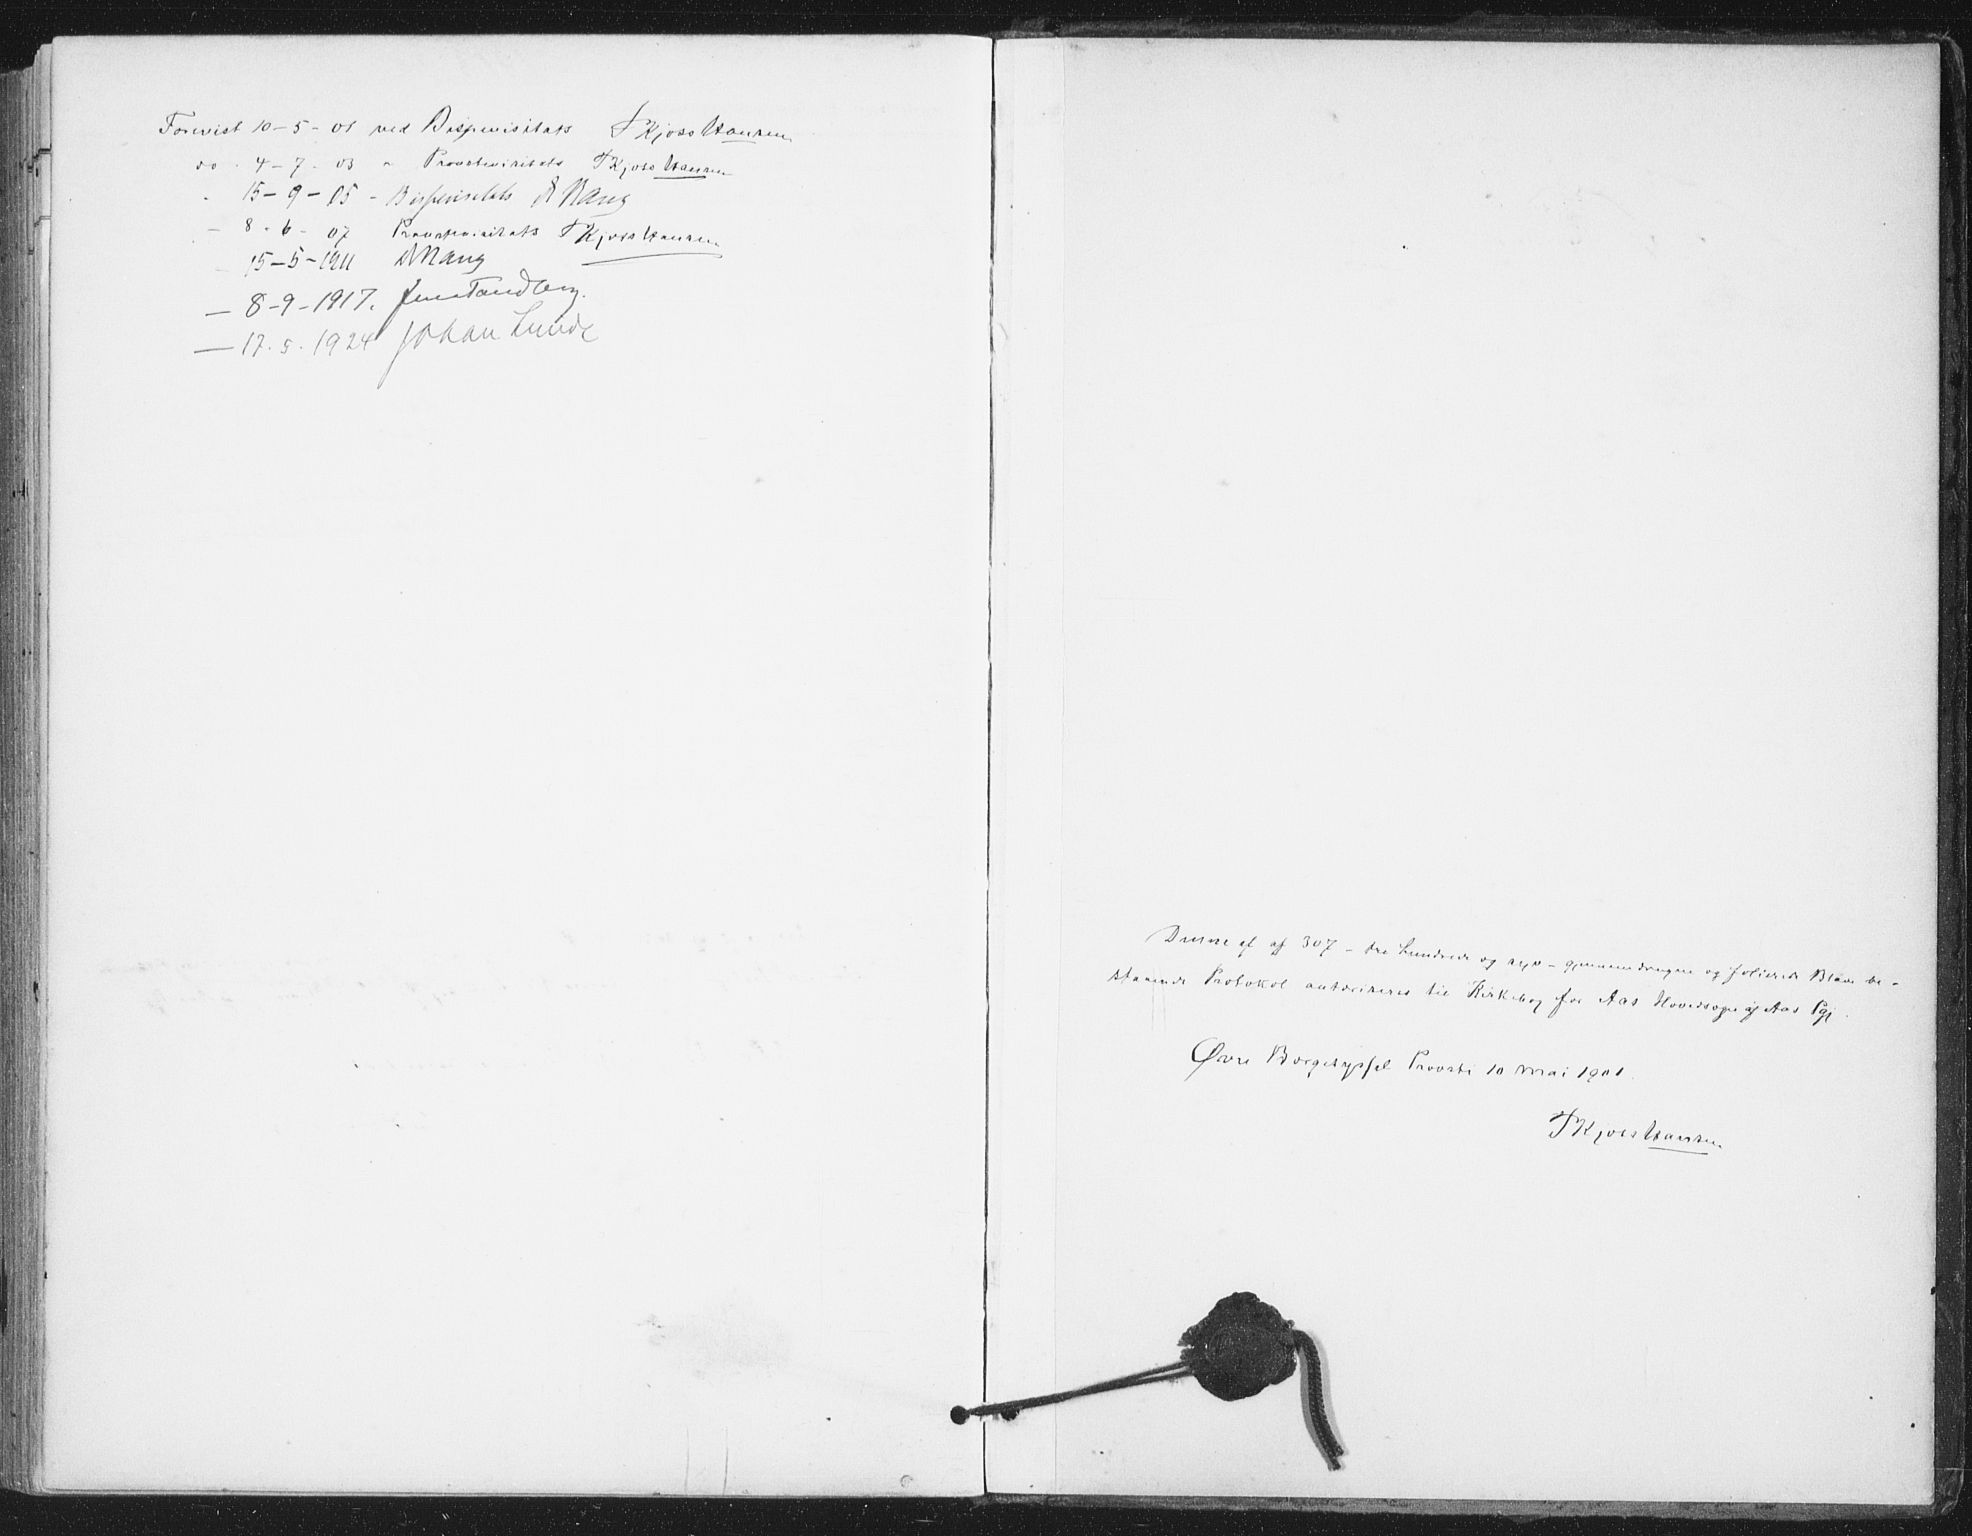 Forevist 10-5-01 ved Bispevisitats T Kjoss Hansen
do. 4-7-03 " Provstevisitats T Kjoss Hansen
" 15-9-05 - Bispevisitats A Bang
- 8-6-07 Provstevisitats T Kjoss Hansen
- 15-5-1911 A Bang
— 8-9-1917. Jens Tandberg.
— 17.5.1924 Johan Lunde
Denne af 307 - tre hundrede og syv - gjennemdragne og folierede Blade be-
staaende Protokol autoriseres til Kirkebog for Aas Hovedsogn af Aas Pgj.
Øvre Borgesyssel Provsti 10 Mai 1901.
T Kjoss Hansen